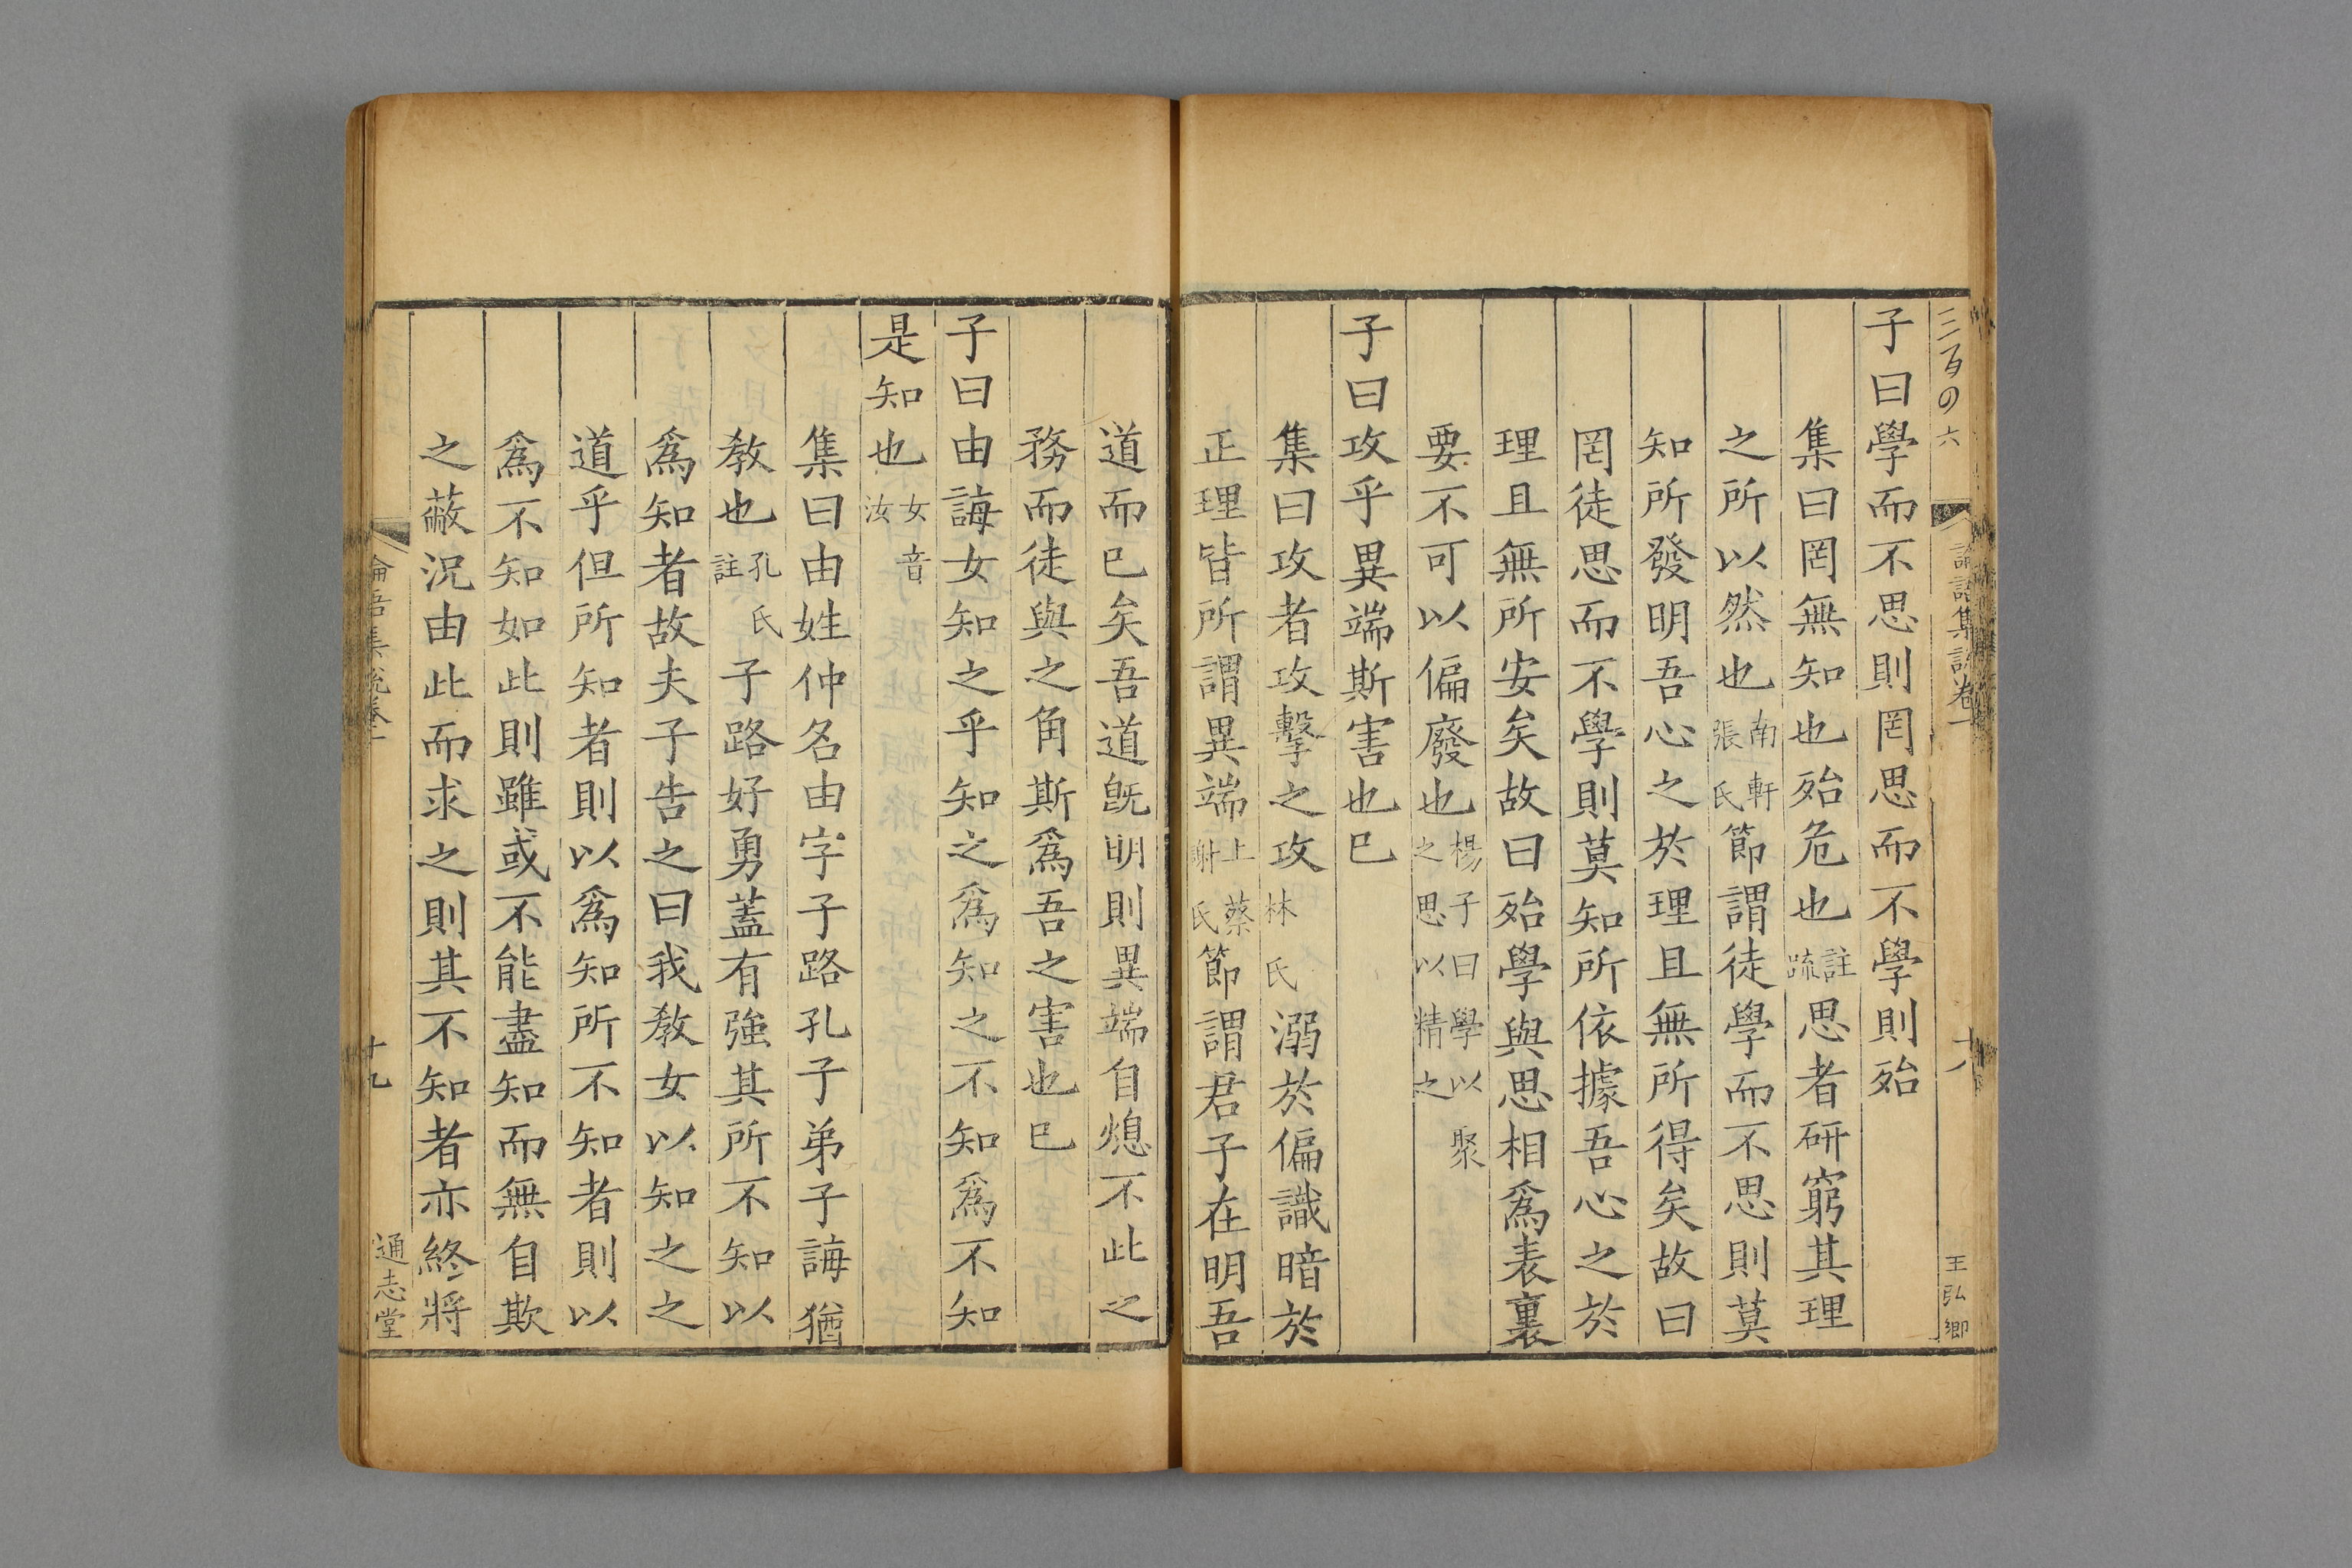 三百の六
論語集說卷一
十八
王弘卿
子曰學而不思則罔思而不學則殆
集曰罔無知也殆危也註疏思者研窮其理
之所以然也南軒張氏節謂徒學而不思則莫
知所發明吾心之於理且無所得矣故曰
罔徒思而不學則莫知所依據吾心之於
理且無所安矣故曰殆學與思相爲表裏
要不可以偏廢也楊子曰學以聚之思以精之
子曰攻乎異端斯害也巳
集曰攻者攻擊之攻林氏溺於偏識暗於
正理皆所謂異端上蔡謝氏節謂君子在明吾
道而巳矣吾道旣明則異端自熄不此之
務而徒與之角斯爲吾之害也巳
子曰由誨女知之乎知之爲知之不知爲不知
是知也女音汝
集曰由姓仲名由字子路孔子弟子誨猶
教也孔氏註子路好勇蓋有強其所不知以
爲知者故夫子告之曰我教女以知之之
道乎但所知者則以爲知所不知者則以
爲不知如此則雖或不能盡知而無自欺
之蔽況由此而求之則其不知者亦終將
論語集說卷一
十九
通志堂